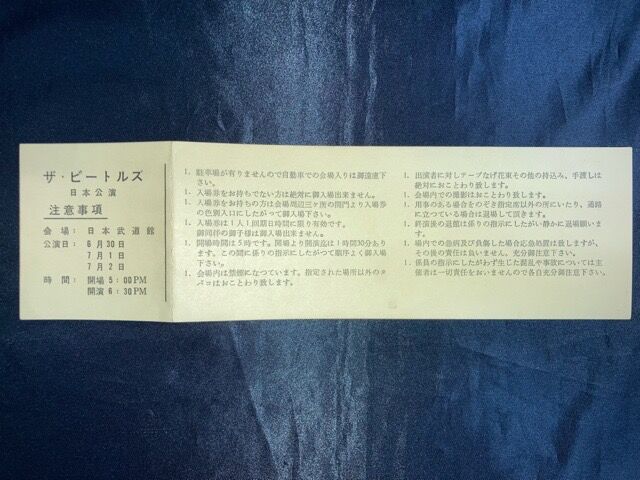 ザ・ビートルズ
日本公演
注意事項
会場：日本武道館
公演日：6月30日
7月1日
7月2日
時間：開場5:00PM
開演6:30PM
1. 駐車場が有りませんので自動車での会場入りは御遠慮下
さい。
1. 入場券をお持ちでない方は絶対に御入場出来ません。
1. 入場券をお持ちの方は会場周辺三ヶ所の門より入場券
の色別入口にしたがつて御入場下さい。
1. 入場券は1人1回期日時間に限り有効です。
御同伴の御子様は御入場出来ません。
1. 開場時間は5時です。開場より開演迄は1時間30分あり
ます。この間に係りの指示にしたがつて順序よく御入場
下さい。
1. 会場内は禁煙になつています。指定された場所以外のタ
バコはおことわり致します。
1. 出演者に対しテープなげ花束その他の持込み、手渡しは
絶対におことわり致します。
1. 会場内での撮影はおことわり致します。
1. 用事のある場合をのぞき指定席以外の所にいたり、通路
に立つている場合は退場して頂きます。
1. 終演後の退館は係りの指示にしたがい静かに退場願いま
す。
1. 場内での急病及び負傷した場合応急処置は致しますが、
その後の責任は負いません。充分御注意下さい。
1. 係員の指示にしたがわず生じた混乱や事故については主
催者は一切責任をおいませんので各自充分御注意下さい。